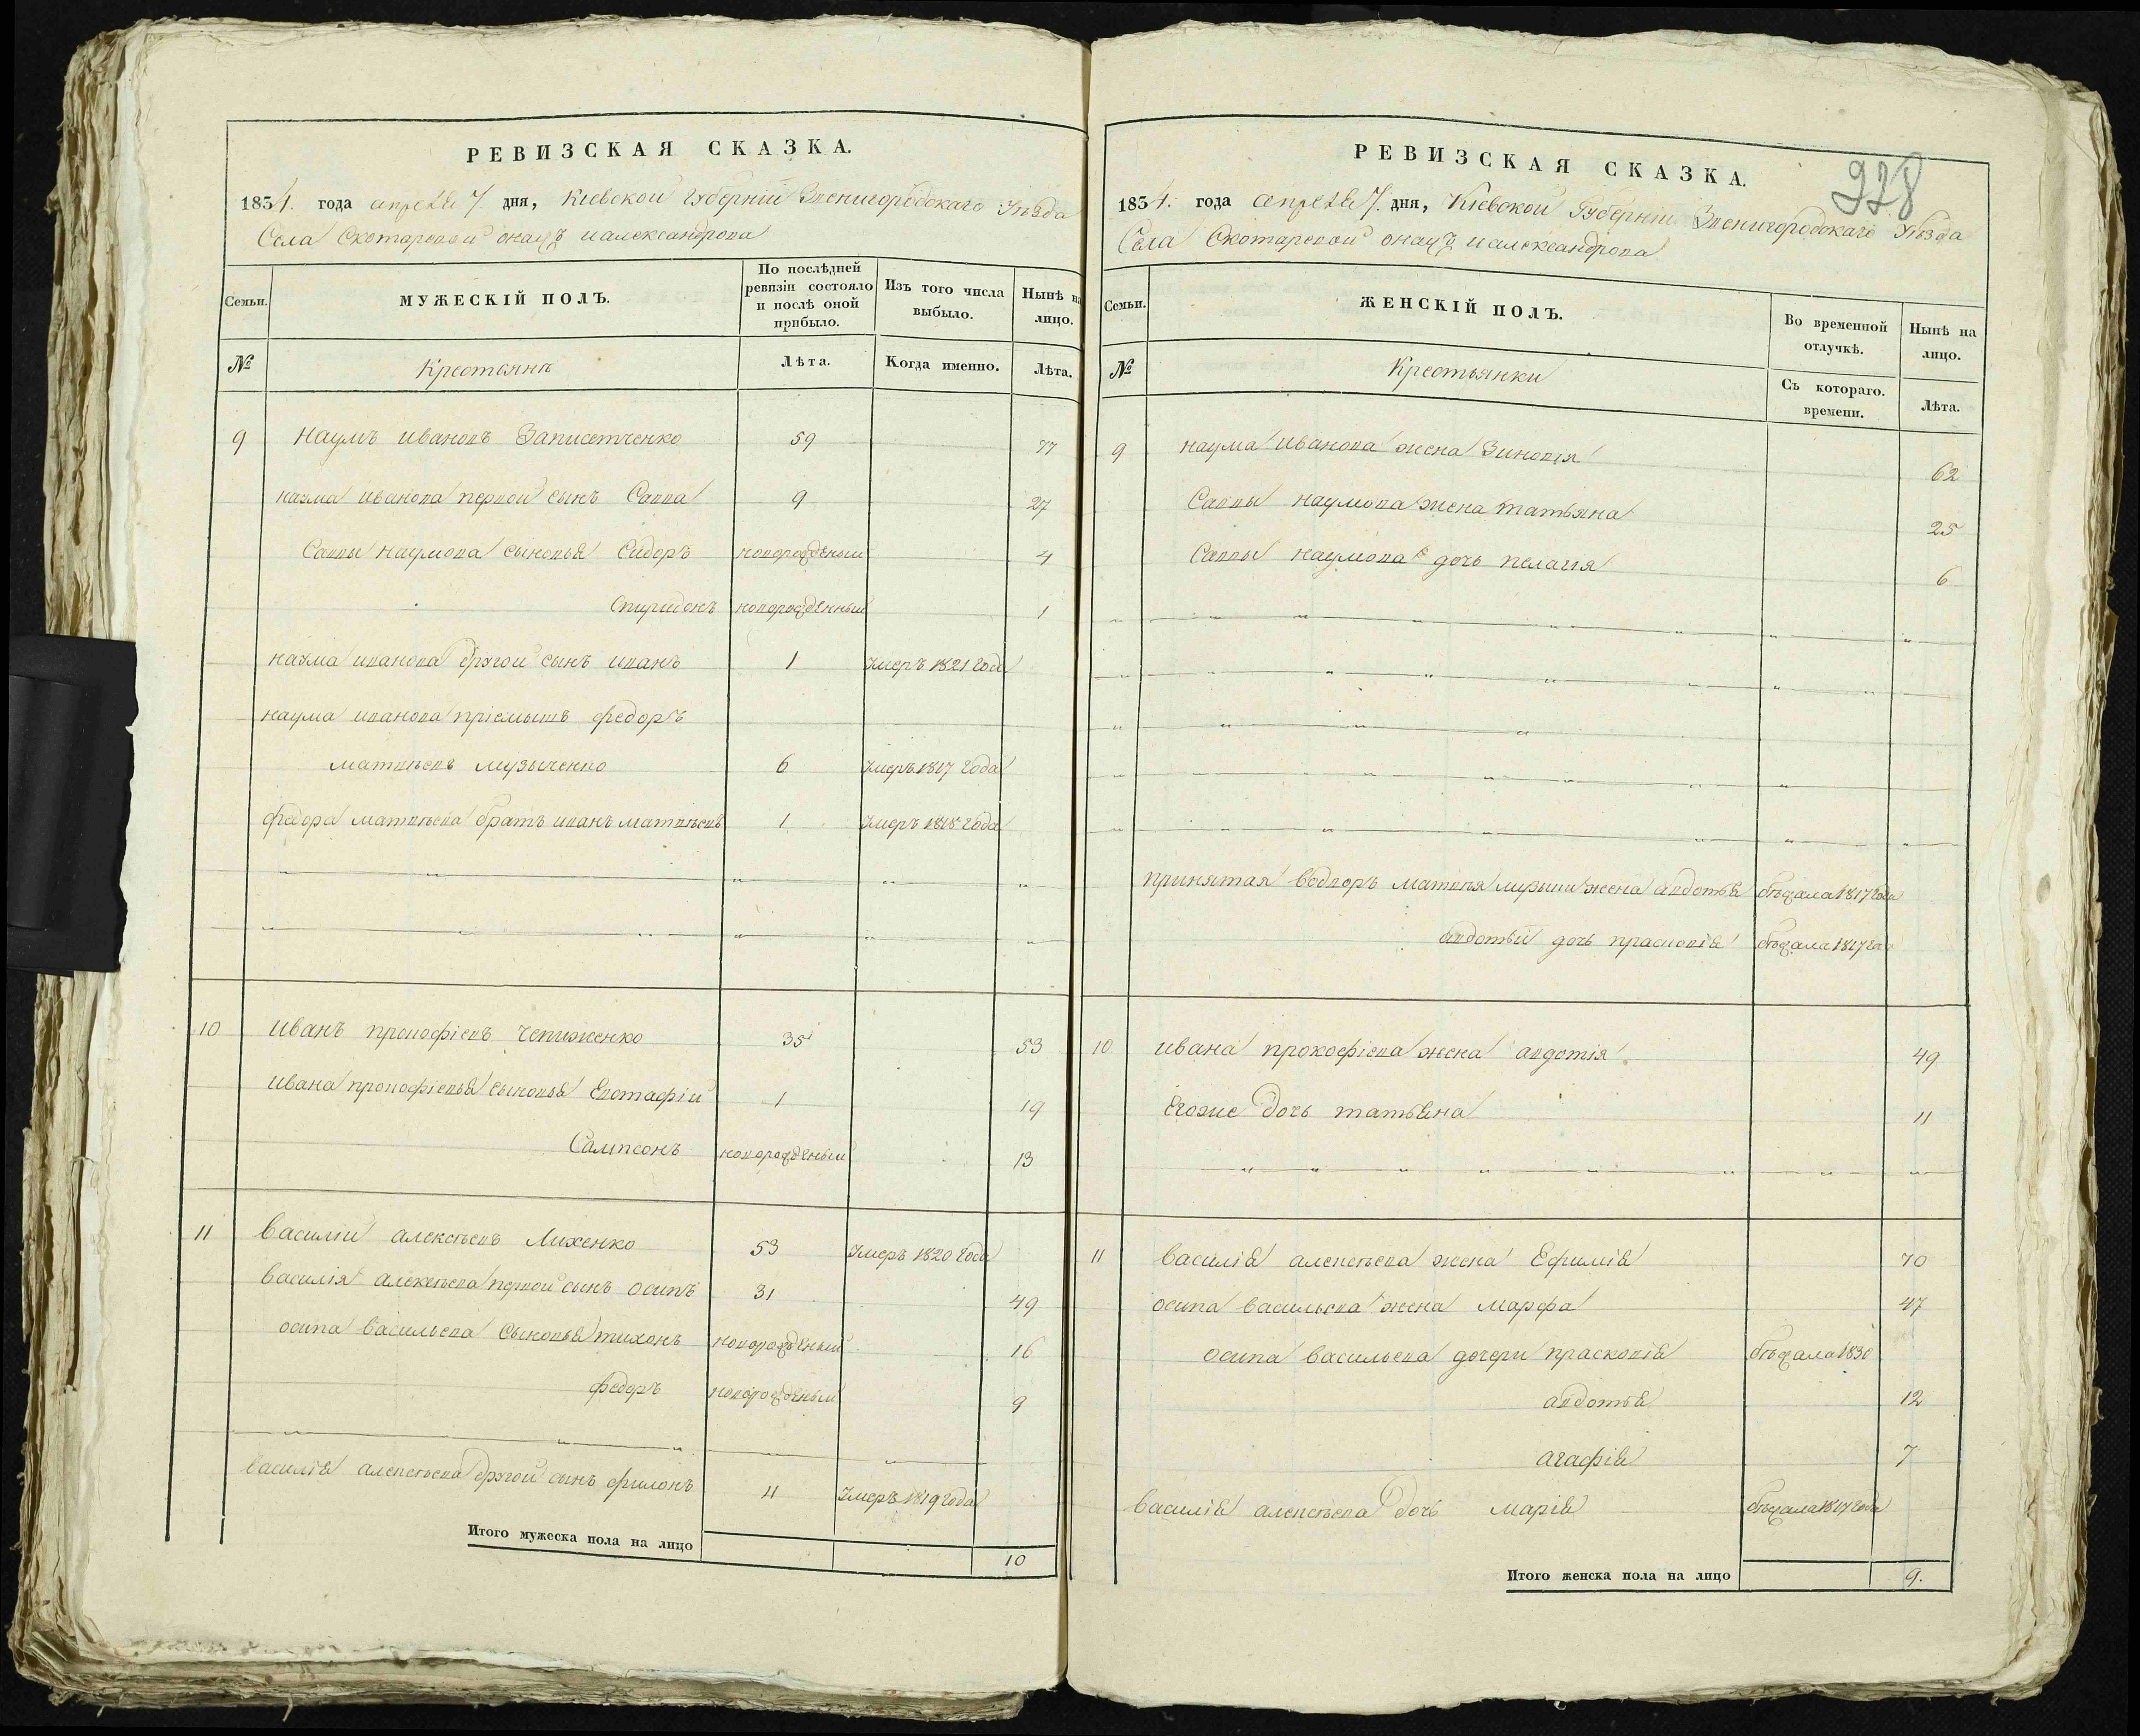 РЕВИЗСКАЯ СКАЗКА.
1834. года апреля 7 дня, Киевской Губерніи Звенигородскаго Уѣзда
Села Скотаревой онацъ иалександрова
Семьи.
МУЖЕСКІЙ ПОЛЪ.
По послѣдней ревизіи состояло и послѣ оной прибыло.
Изъ того числа выбыло.
Нынѣ на лицо.
№
Крестьянъ
Лѣта.
Когда именно.
Лѣта.
9 наумъ ивановъ Записотченко 59 77
наума иванова первой сынъ Савва 9 27
Саввы наумова сыновья Сидоръ новорожденый 4
Спиридонъ новорожденный 1
наума иванова другой сынъ иванъ 1 умеръ 1821 года
наума иванова пріемышъ федоръ
матвѣевъ музыченко 6 умеръ 1817 года
федора матвѣева братъ иванъ матвѣевъ 1 умеръ 1818 года
10 иванъ прокофіевъ чепиженко 35 53
ивана прокофіевья сыновья Евтафій 1 19
Сампсонъ новорожденый 13
11 василій алексѣевъ Лихенко 53 умеръ 1820 года
василія алексѣева первой сынъ осипъ 31 49
осипа васильева сыновья тихонъ новорожденый 16
федоръ новорожденый 9
василія алексѣева другой сынъ филонъ 11 умеръ 1819 года
Итого мужеска пола на лицо 10
928
РЕВИЗСКАЯ СКАЗКА.
1834. года апреля 7. дня, Киевской Губерніи Звенигородскаго Уѣзда
Села Скотаревой онацъ иалександрова
Семьи.
ЖЕНСКІЙ ПОЛЪ.
Во временной отлучкѣ.
Нынѣ на лицо.
№
Крестьянки
Съ котораго. времени.
Лѣта.
9 наума иванова жена Зиновія 62
Саввы наумова жена татьяна 25
Саввы наумова дочь пелагія 6
принятая водворъ матвѣя музыки жена авдотья бѣжала 1817 года
авдотьи дочь прасковія бѣжала 1817 года
10 ивана прокофіева жена авдотія 49
Егоже дочь татьяна 11
11 василія алексѣева жена Ефимія 70
осипа васильева жена марфа 47
осипа васильева дочери прасковія бѣжала 1830
авдотья 12
агафія 7
василія алексѣева дочь марія бѣжала 1817 года
Итого женска пола на лицо 9.